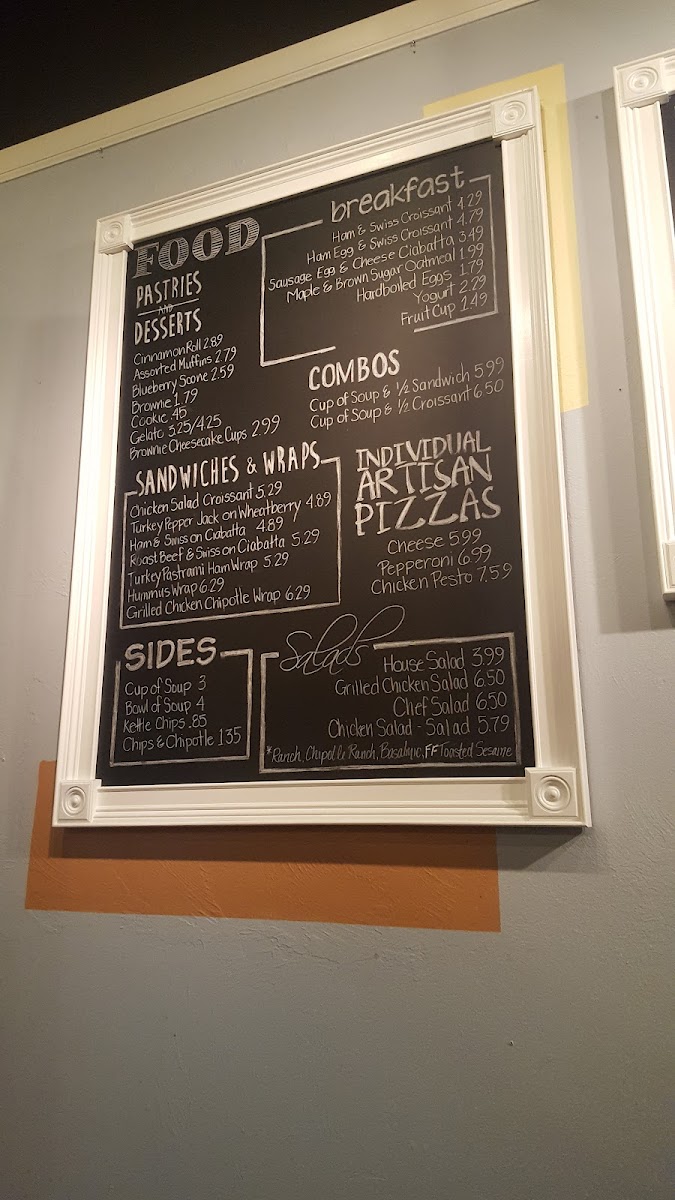 FOOD
PASTRIES
AND
DESSERTS
Cinnamon Roll 2.89
Assorted Muffins 2.79
Blueberry Scone 2.59
Brownie 1.79
Cookie .45
Gelato 3.25/4.25
Brownie Cheesecake Cups 2.99
breakfast
Ham & Swiss Croissant 4.29
Ham Egg & Swiss Croissant 4.79
Sausage Egg & Cheese Ciabatta 3.49
Maple & Brown Sugar Oatmeal 1.99
Hardboiled Eggs 1.79
Yogurt 2.29
Fruit Cup 1.49
COMBOS
Cup of Soup & 1/2 Sandwich 5.99
Cup of Soup & 1/2 Croissant 6.50
SANDWICHES & WRAPS
Chicken Salad Croissant 5.29
Turkey Pepper Jack on Wheatberry 4.89
Ham & Swiss on Ciabatta 4.89
Roast Beef & Swiss on Ciabatta 5.29
Turkey Pastrami Ham Wrap 5.29
Hummus Wrap 6.29
Grilled Chicken Chipotle Wrap 6.29
INDIVIDUAL
ARTISAN
PIZZAS
Cheese 5.99
Pepperoni 6.99
Chicken Pesto 7.59
SIDES
Cup of Soup 3
Bowl of Soup 4
Kettle Chips .85
Chips & Chipotle 1.35
Salads
House Salad 3.99
Grilled Chicken Salad 6.50
Chef Salad 6.50
Chicken Salad - Salad 5.79
*Ranch, Ranch, FF Toasted Sesame